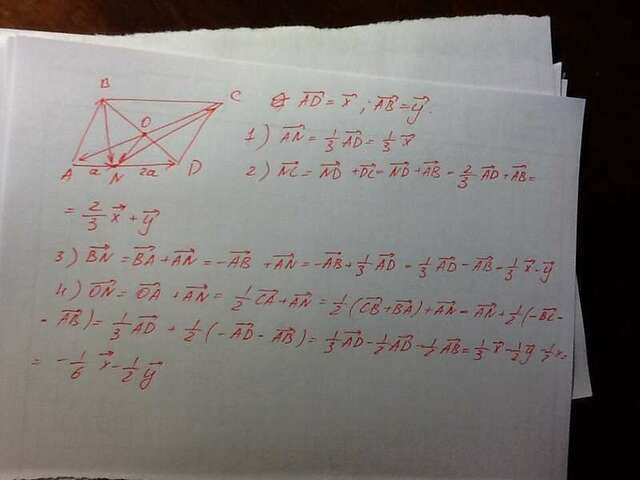 B
C
O
A a N 2a D
AD⃗ = x⃗ ; AB⃗ = y⃗.
1) AN⃗ = 1/3 AD⃗ = 1/3 x⃗
2) NC⃗ = ND⃗ + DC⃗ = ND⃗ + AB⃗ = 2/3 AD⃗ + AB⃗ =
= 2/3 x⃗ + y⃗
3) BN⃗ = BA⃗ + AN⃗ = -AB⃗ + AN⃗ = -AB⃗ + 1/3 AD⃗ = 1/3 AD⃗ - AB⃗ = 1/3 x⃗ - y⃗
4) ON⃗ = OA⃗ + AN⃗ = 1/2 CA⃗ + AN⃗ = 1/2 (CB⃗ + BA⃗) + AN⃗ = AN⃗ + 1/2 (-BC⃗ -
- AB⃗) = 1/3 AD⃗ + 1/2 (-AD⃗ - AB⃗) = 1/3 AD⃗ - 1/2 AD⃗ - 1/2 AB⃗ = 1/3 x⃗ - 1/2 y⃗ - 1/2 x⃗ =
= -1/6 x⃗ - 1/2 y⃗